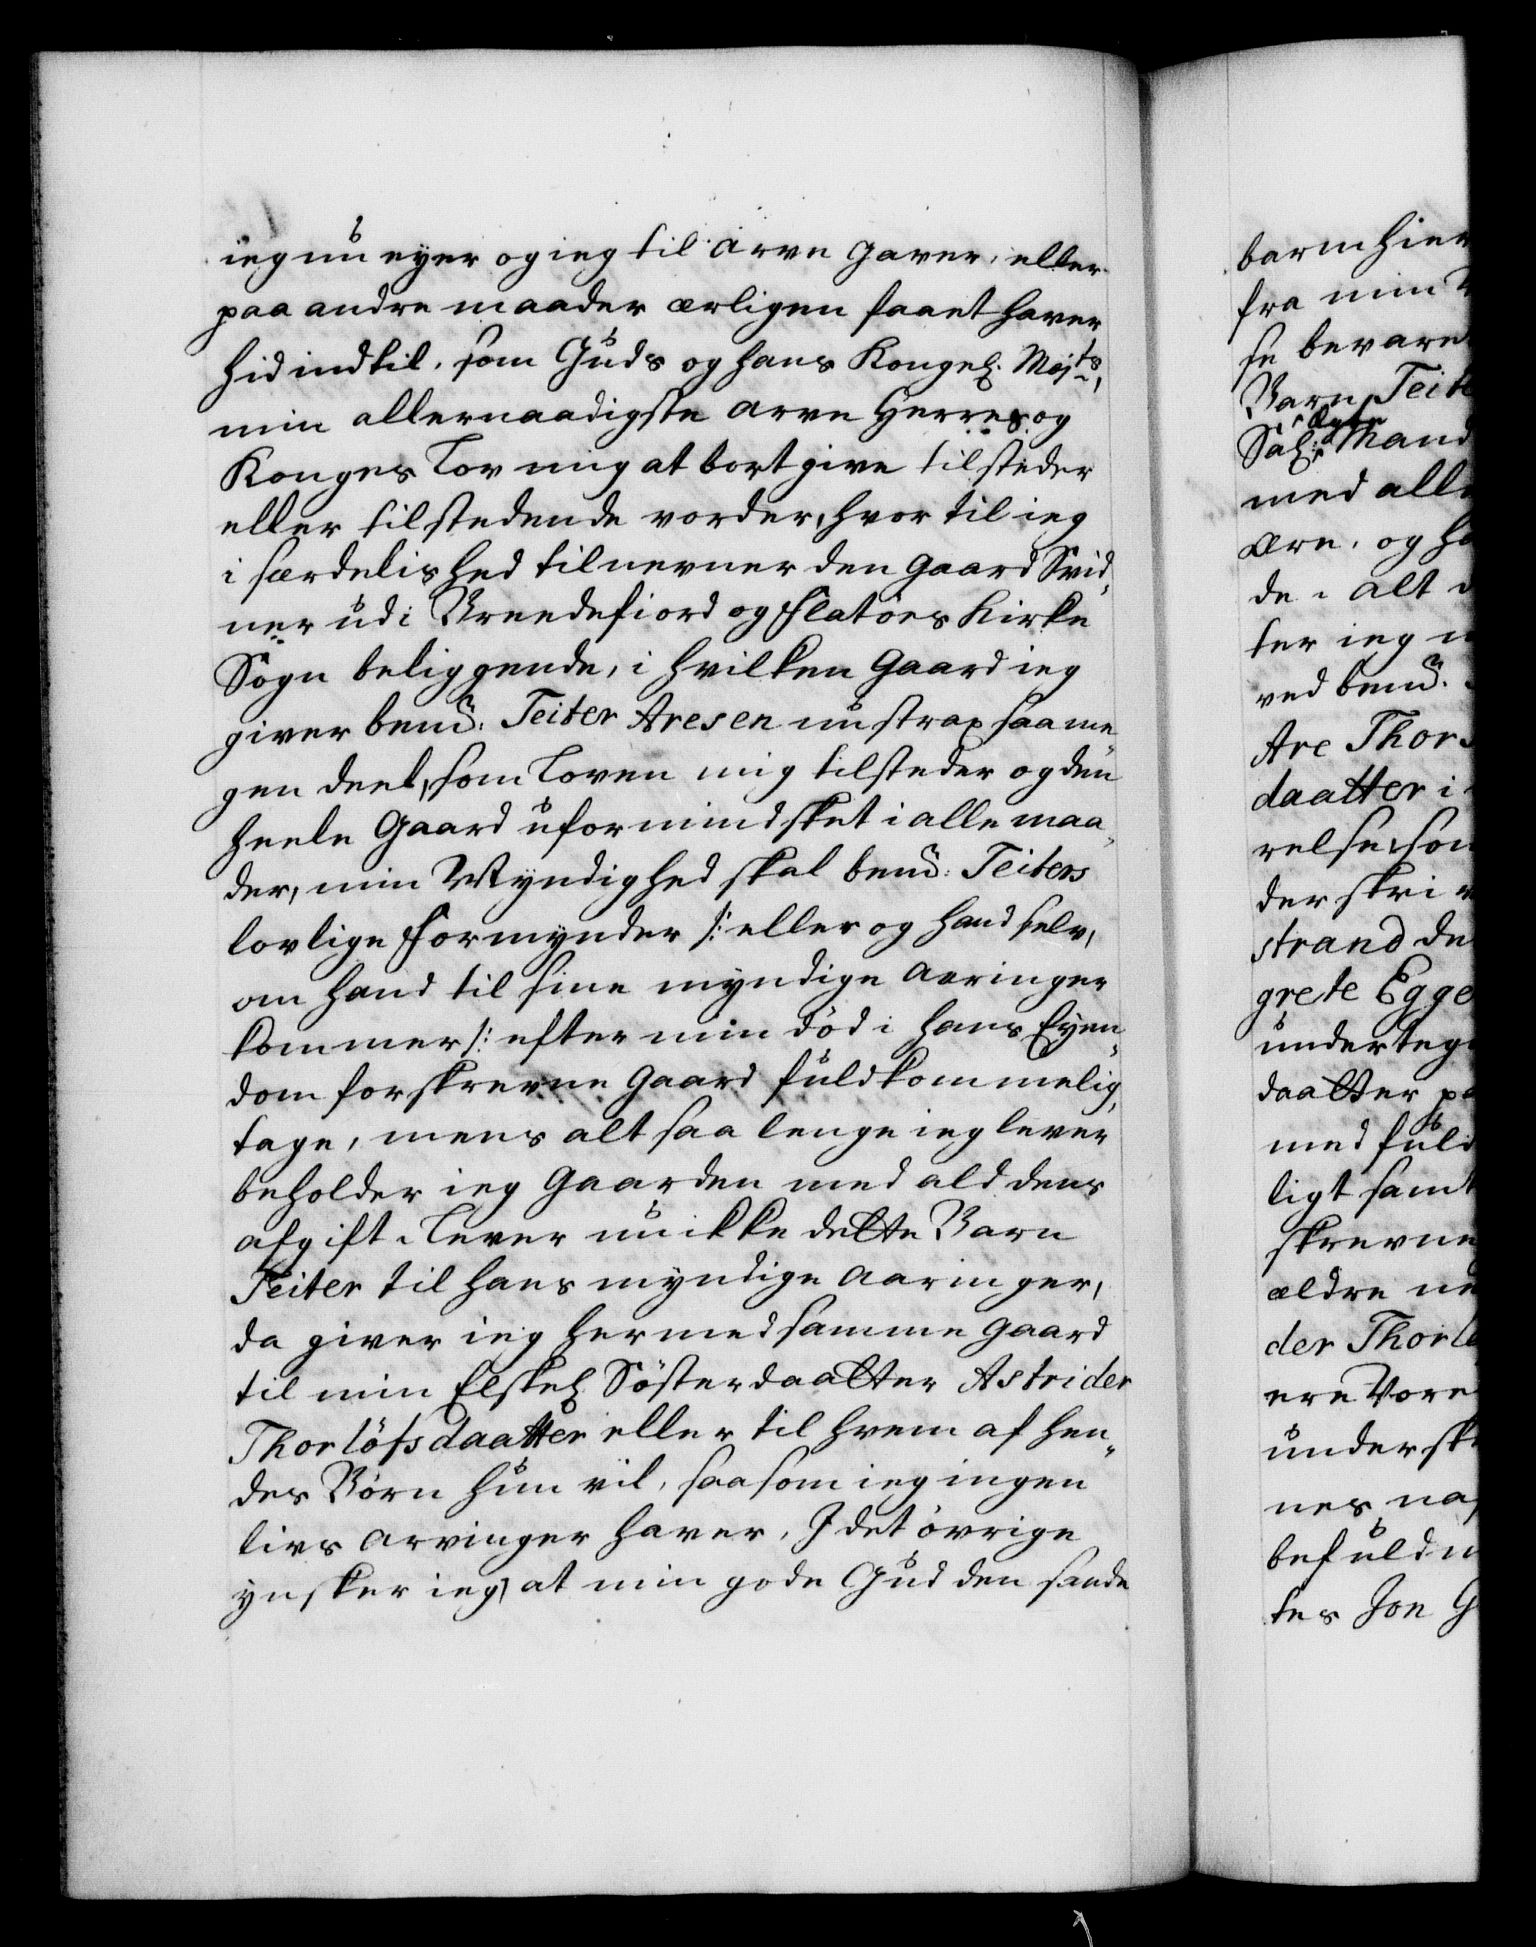 ieg nu eyer og ieg til arve gaver, eller
paa andre maader ærligen faaet haver
hid indtil, som Guds og hans Kongel. Majts,
min allernaadigste arve Herres og
Konges Lov mig at bortgive tilsteder
eller tilstedende vorder, hvortil ieg
i særdelished tilnevner den gaard Svid„
ner udi Breedefiord og Flatöes Kirke
Sogn beliggende, i hvilken Gaard ieg
giver bemt: Teiter Aresen nu strax saa me„
gen deel, som Loven mig tilsteder og den
heele Gaard uformindsket i alle maa„
der, min Myndighed skal bemt: Teiters
lovlige Formynder /: eller og hand selv,
om hand til sine myndige aaringer
kommer :/ efter min död i hans Eyen„
dom forskrevne gaard fuldkommelig
tage, mens alt saa lenge ieg lever
beholder ieg Gaarden med ald dens
afgift. Lever nu ikke dette Barn
Teiter til hans myndige aaringer,
da giver ieg hermed samme gaard
til min Elskel Sösterdaatter Astrider
Thorlöfsdaatter eller til hvem af hen„
des Börn hun vil, saasom ieg ingen
livs arvinger haver. I det övrige
ynsker ieg, at min gode Gud den sande
barmhier
fra min
se bevare
Barn Teite
Sal: Mand
med alle
ære, og
de i alt
ter ieg
ved bemt.
Are Thor
daatter i
relse, som
der skri
strand de
grete Egge
underteg
daatter
med fuld
ligt samt
skrevne
ældre
der Thorl
ere Vore
undersk
nes
befuldm
tes Jon G